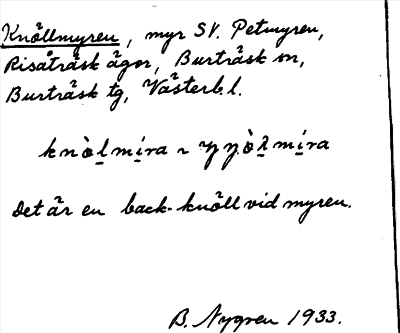 Knöllmyren, myr SV. Petmyren,
Risåträsk ägor, Burträsk sn,
Burträsk tg, Västerb. l.
knò̱lmi̱ra ~
Det är en back-knöll vid myren.
B. Nygren 1933.